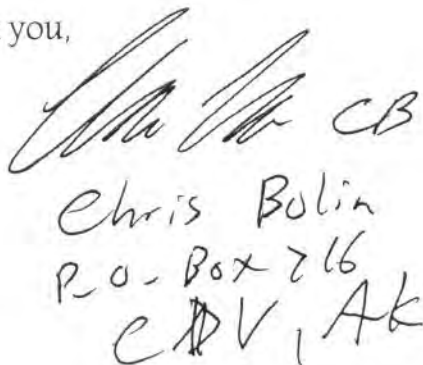 you,
CB
Chris Bolin
P.O. Box 716
CDV, AK